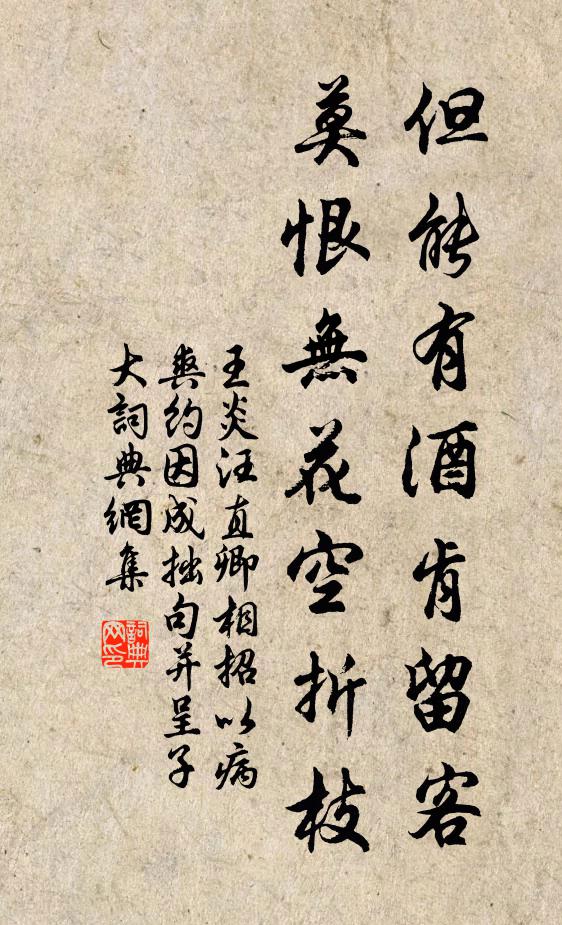 但能有酒肯留客
莫恨無花空折枝
王炎汪直卿相招以病
爽約因成拙句并呈子
大詞典網集
詞典網印